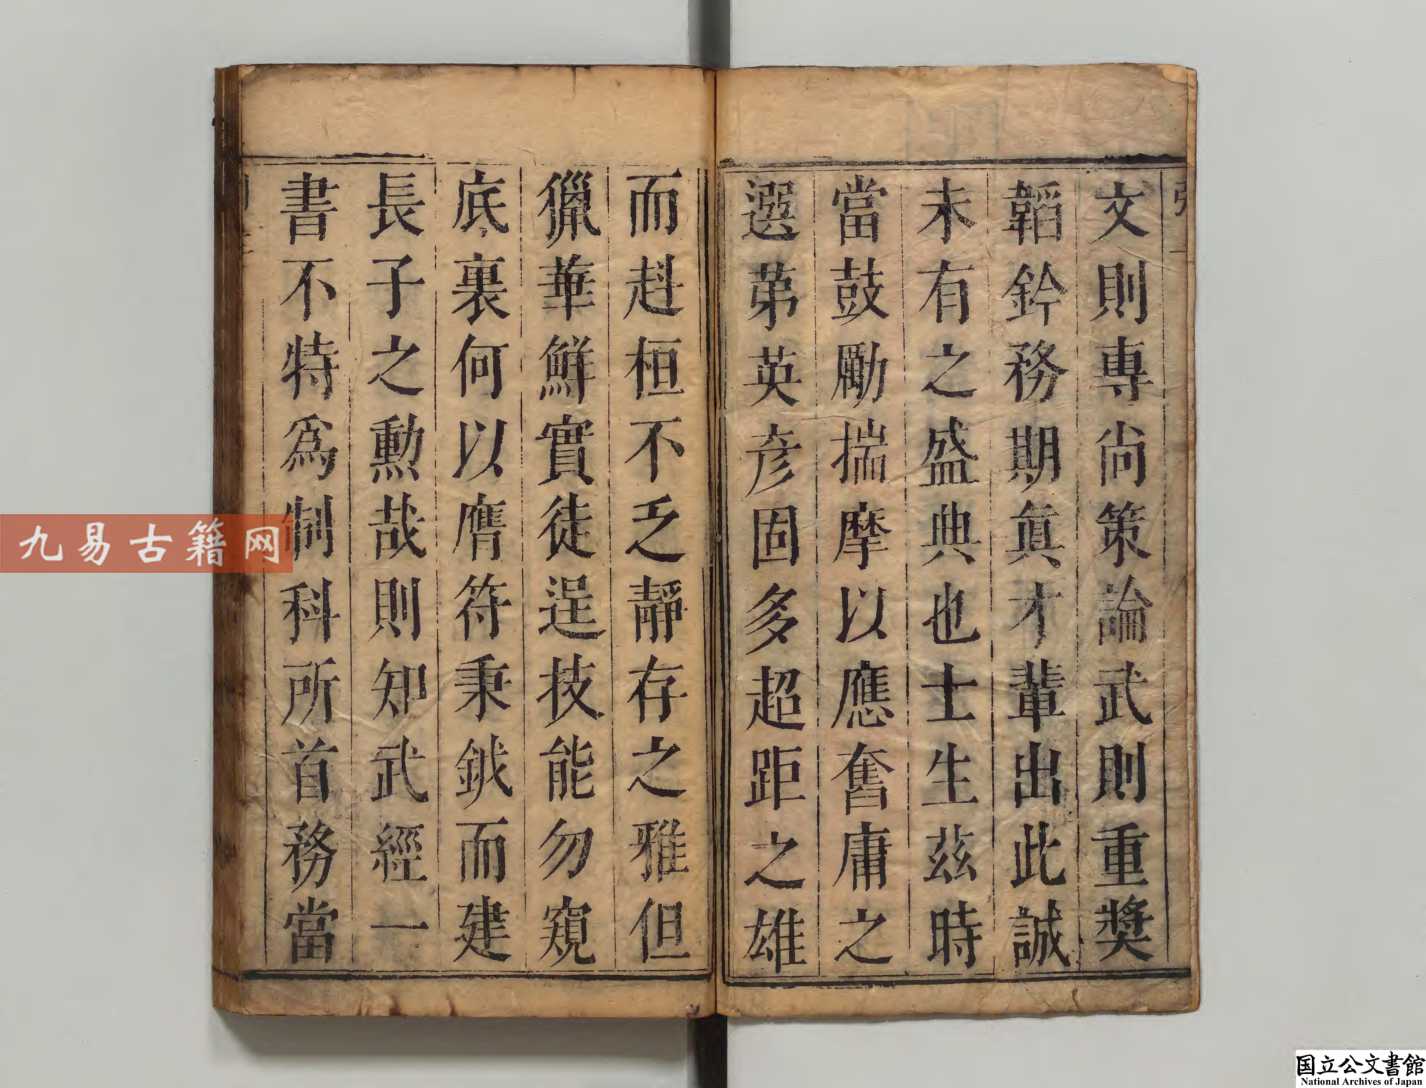 文則專尚策論武則重獎
韜鈐務期眞才輩出此誠
未有之盛典也士生茲時
當鼓勵揣摩以應奮庸之
選苐英彥固多超距之雄
而赳桓不乏靜存之雅但
獵華鮮實徒逞技能勿窺
底裏何以膺符秉鉞而建
長子之勳哉則知武經一
書不特爲制科所首務當
九易古籍网
国立公文書館
National Archives of Japan